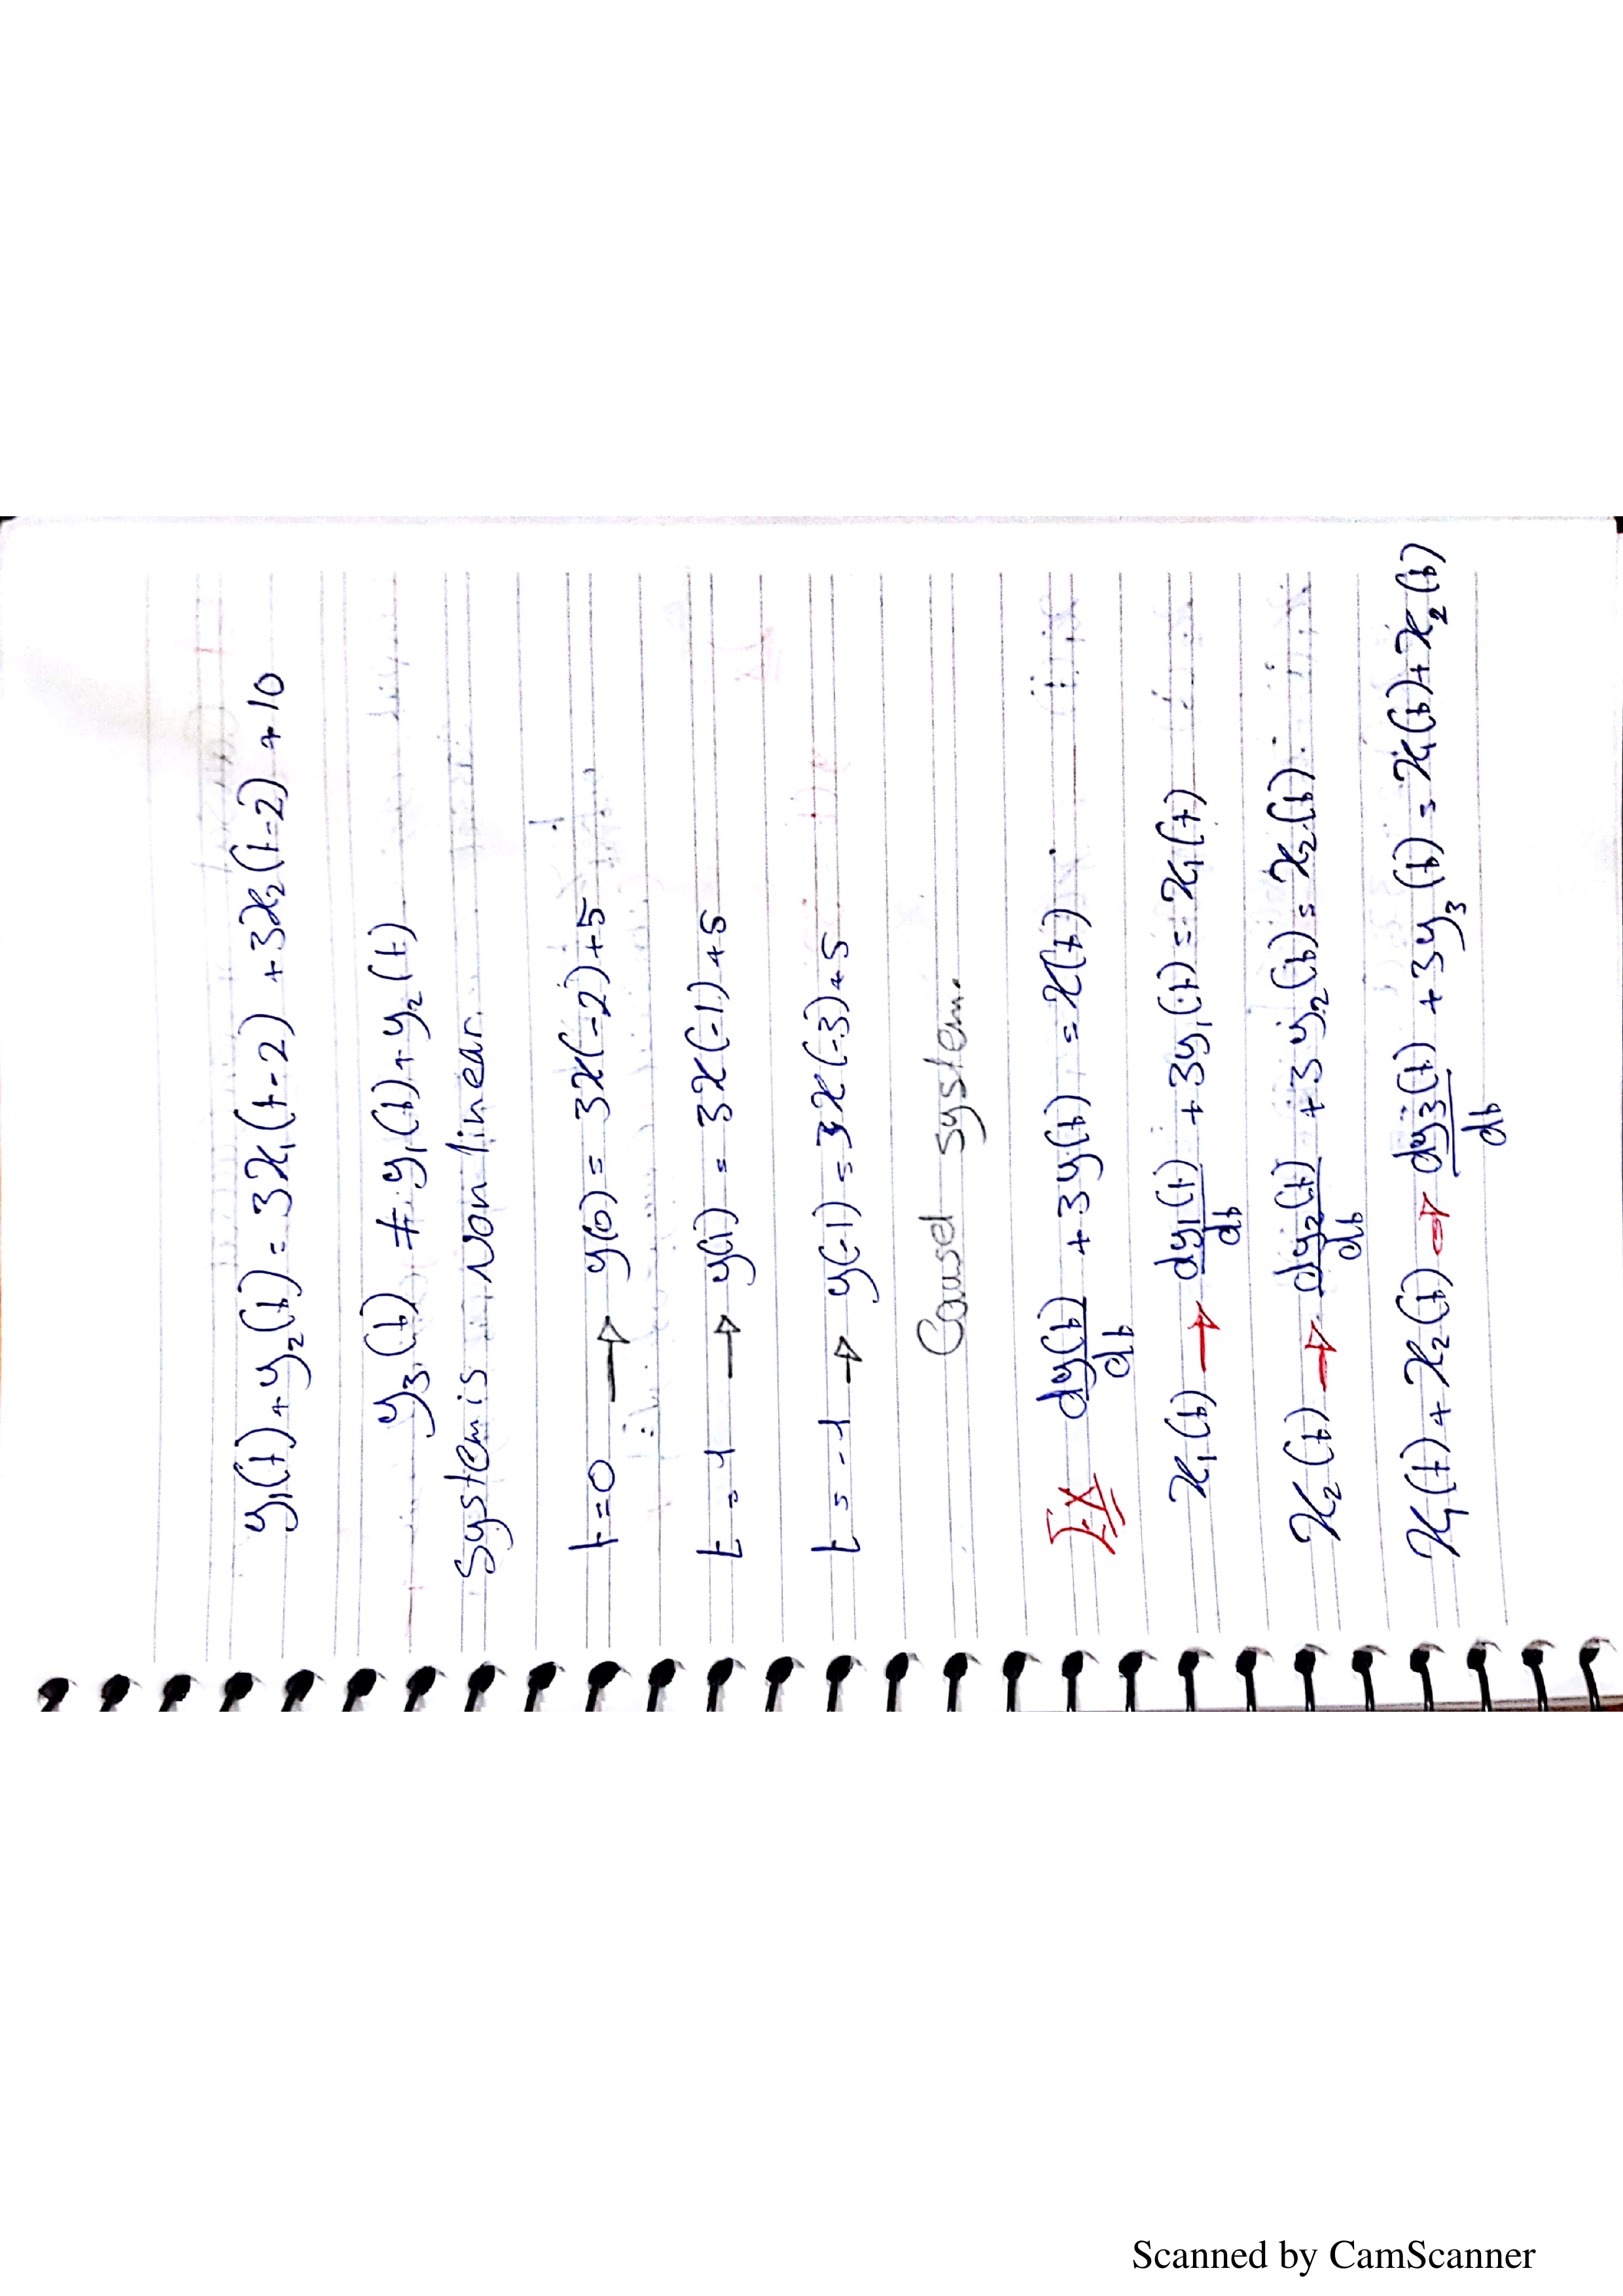 y₁(t) + y₂(t) = 3x₁(t-2) + 3x₂(t-2) + 10
y₃(t) ≠ y₁(t) + y₂(t)
System is Non linear.
t=0 → y(0) = 3x(-2)+5
t = 1 → y(1) = 3x(-1)+5
t = -1 → y(-1) = 3x(-3)+5
Causel system.
dy(t)/dt + 3y(t) = x(t)
x₁(t) → dy₁(t)/dt + 3y₁(t) = x₁(t)
x₂(t) → dy₂(t)/dt + 3y₂(t) = x₂(t)
x₁(t) + x₂(t) → dy₃(t)/dt + 3y₃(t) = x₁(t) + x₂(t)
Scanned by CamScanner